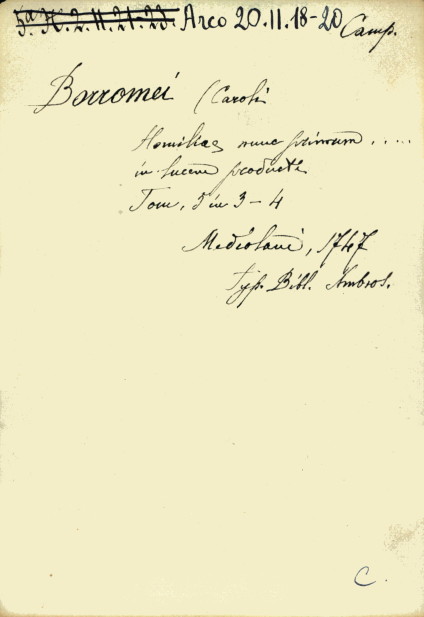 5ª. K. 2. II. 21-23. Arco 20.11.18-20 Camp.
Borromei (Caroli
Homiliae nunc primum .....
in lucem productae
Tom. 5 in 3-4
Mediolani, 1747
Typ. Bibl. Ambros.
C.